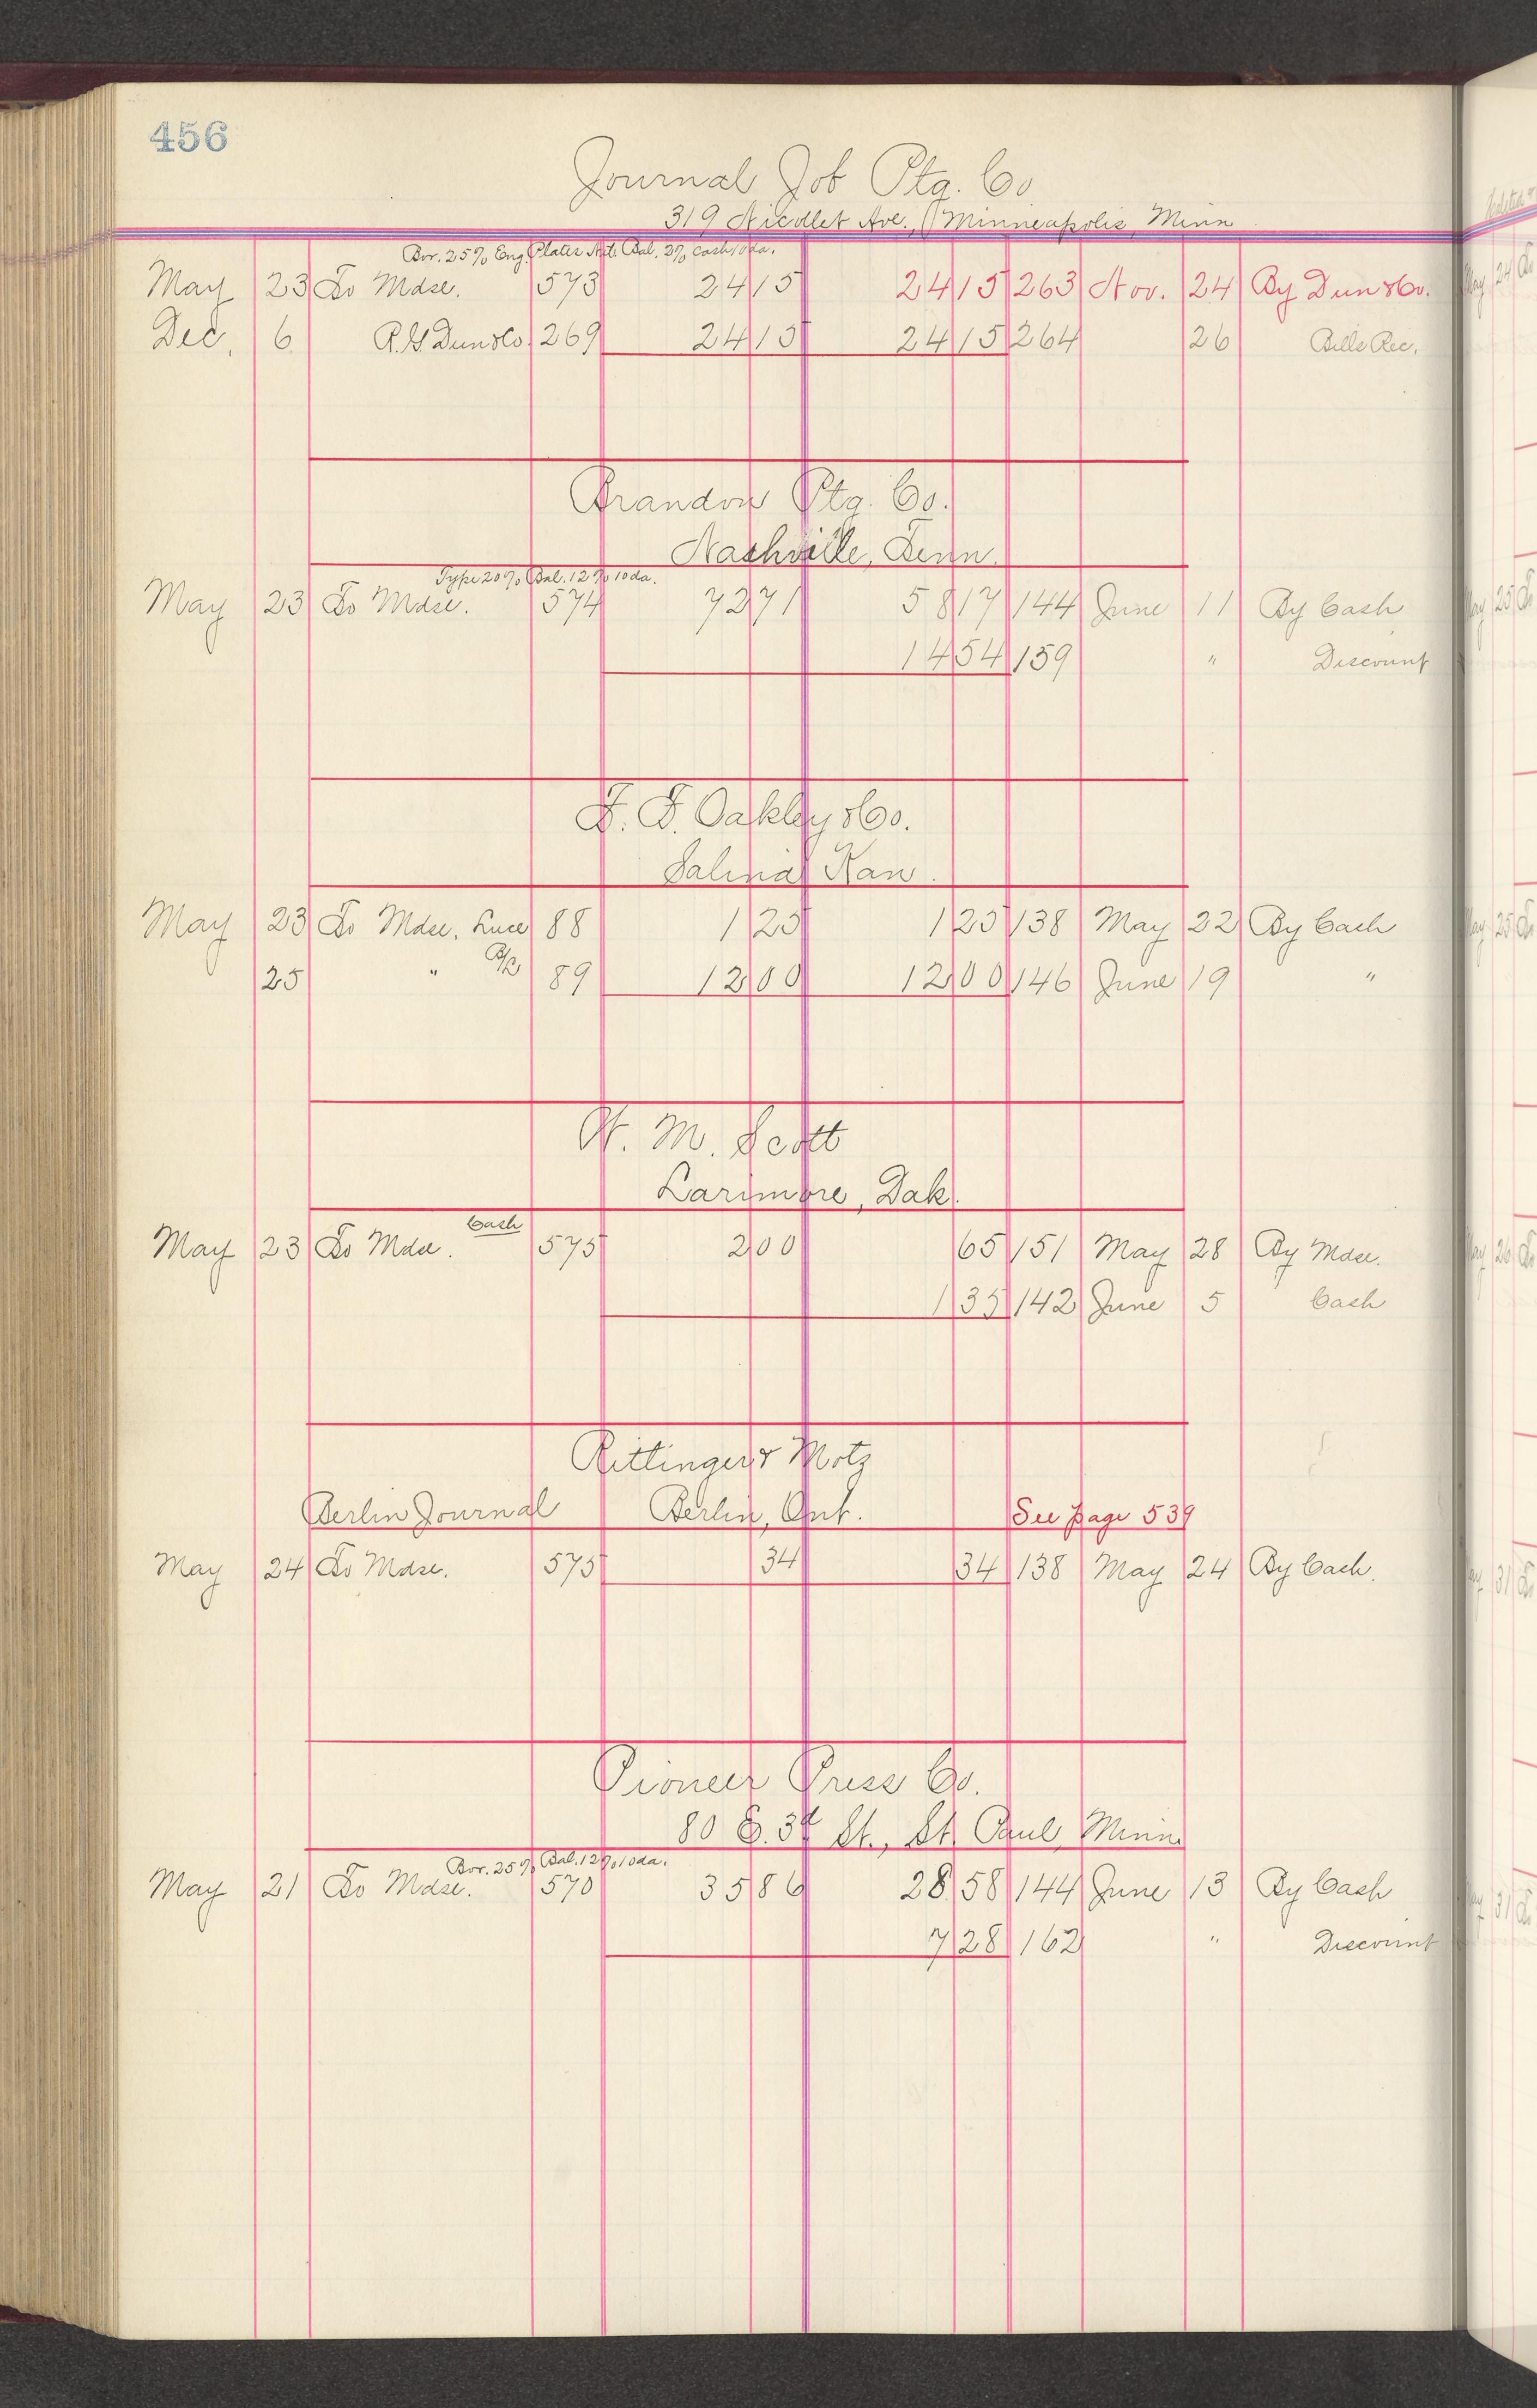 456
Journal Job Ptg. Co
319 Nicollet Ave., Minneapolis, Minn
Bor. 25% Eng. Plates Net. Bal. 2% Cash 10 da.
May 23 To Mdse. 573 24 15 24 15 263 Nov. 24 By Dun & Co.
Dec. 6 R. G. Dun & Co 269 24 15 24 15 264 26 Bills Rec.
Brandon Ptg. Co.
Nashville, Tenn
Type 20% Bal. 12% 10 da.
May 23 To Mdse. 574 72 71 58 17 144 June 11 By Cash
14 54 159 " Discount
F. F. Oakley & Co.
Salina Kan.
May 23 To Mdse. Luce 88 1 25 1 25 138 May 22 By Cash
25 " 89 12 00 12 00 146 June 19 "
W. M. Scott
Larimore, Dak.
Cash
May 23 To Mdse. 575 2 00 65 151 May 28 By Mdse.
1 35 142 June 5 Cash
Rittinger & Motz
Berlin Journal Berlin, Ont. See page 539
May 24 To Mdse. 575 34 34 138 May 24 By Cash.
Pioneer Press Co.
80 E. 3d St., St. Paul, Minn
Bor. 25% Bal. 12% 10 da.
May 21 To Mdse. 570 35 86 28 58 144 June 13 By Cash
7 28 162 " Discount